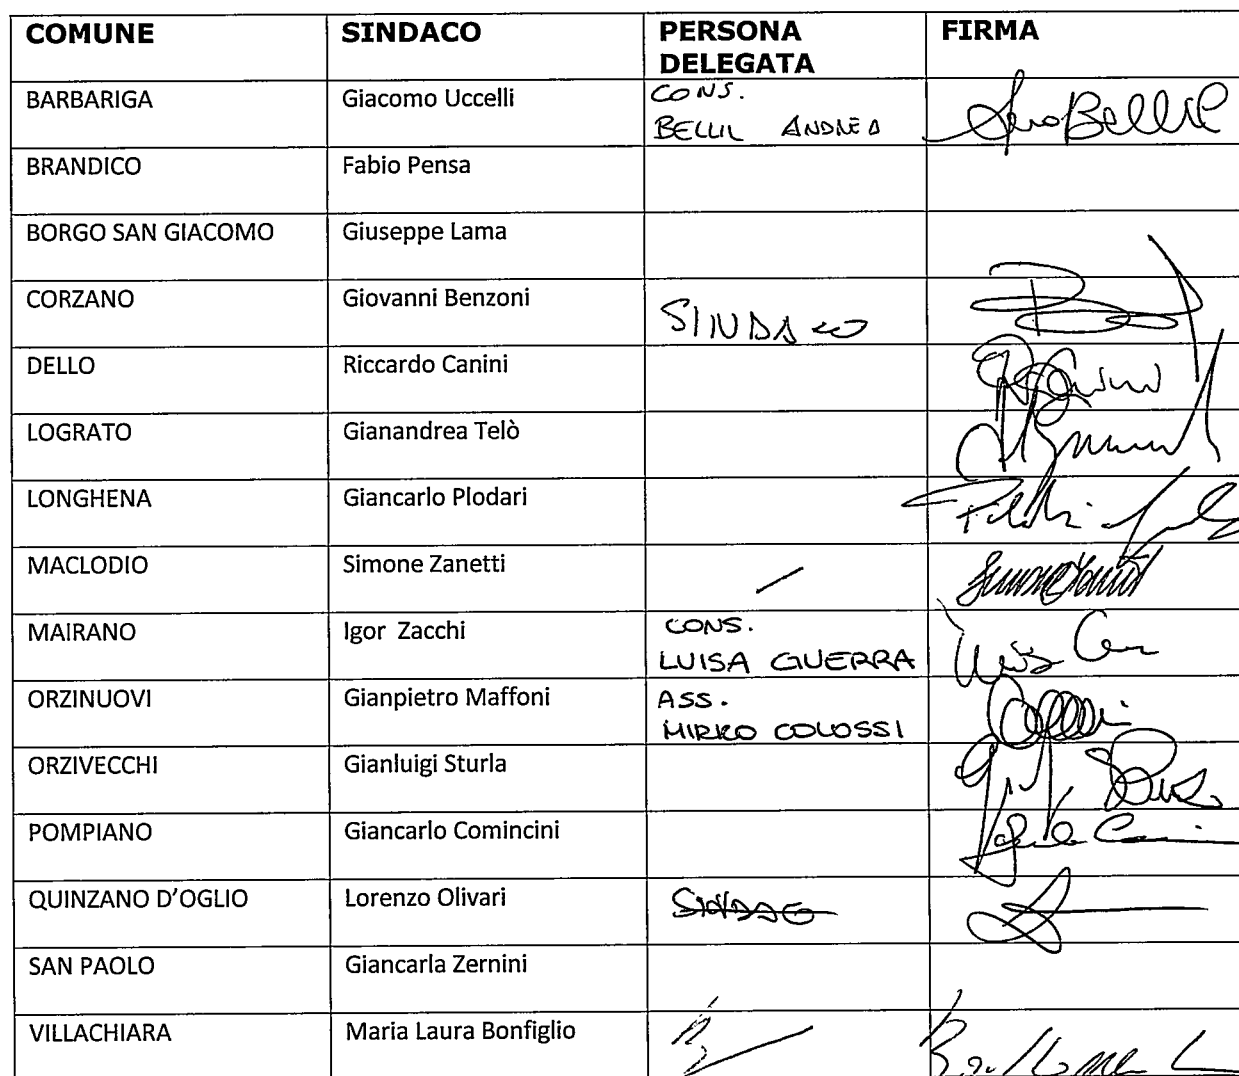 COMUNE SINDACO PERSONA DELEGATA FIRMA
BARBARIGA Giacomo Uccelli CONS. BELLIL ANDREA
BRANDICO Fabio Pensa
BORGO SAN GIACOMO Giuseppe Lama
CORZANO Giovanni Benzoni SINDACO
DELLO Riccardo Canini
LOGRATO Gianandrea Telò
LONGHENA Giancarlo Plodari
MACLODIO Simone Zanetti
MAIRANO Igor Zacchi CONS. LUISA GUERRA
ORZINUOVI Gianpietro Maffoni ASS. MIRKO COLOSSI
ORZIVECCHI Gianluigi Sturla
POMPIANO Giancarlo Comincini
QUINZANO D'OGLIO Lorenzo Olivari SINDACO
SAN PAOLO Giancarla Zernini
VILLACHIARA Maria Laura Bonfiglio